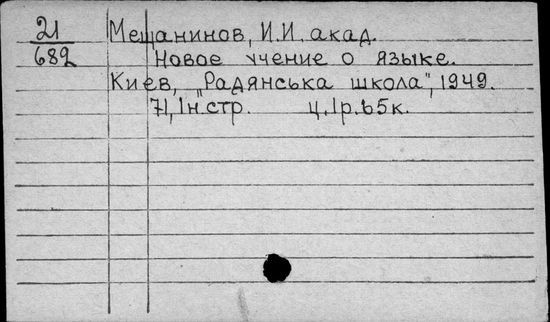 21 Мещанинов, И.И. акад.
682 Новое учение о языке.
Киев, „Радянська школа", 1949.
71, 1н.стр. ц. 1р.65к.